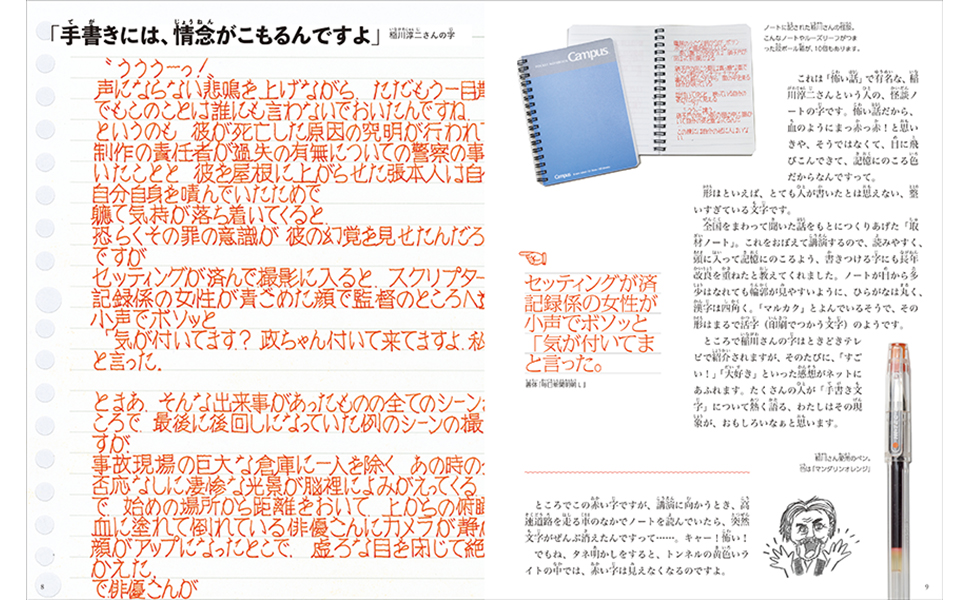 「手書きには、情念がこもるんですよ」 稲川淳二さんの字
〝うううーっ！
声にならない悲鳴を上げながら、ただもう一目散
でもこのことは誰にも言わないでおいたんですね.
というのも 彼が死亡した原因の究明が行われて
制作の責任者が過失の有無についての警察の事
いたことと 彼を屋根に上がらせた張本人は自分
自分自身を嘖んでいたためで
軈て気持が落ち着いてくると
恐らくその罪の意識が 彼の幻覚を見せたんだろ
ですが
セッティングが済んで撮影に入ると、スクリプター
記録係の女性が青ざめた顔で監督のところへ
小声でボソッと
「気が付いてます？政ちゃん付いて来てますよ、私
と言った.
とまあ、そんな出来事があったものの全てのシーンが
ころで、最後に後回しになっていた例のシーンの撮
すが.
事故現場の巨大な倉庫に一人を除く、あの時の
否応なしに凄惨な光景が脳裡によみがえってくる
で 始めの場所から距離をおいて、上からの俯瞰
血に塗れて倒れている俳優さんにカメラが静か
顔がアップになったとこで、虚ろな目を閉じて絶
かえた.
で俳優さんが
8
Campus
Campus
ノートに記された稲川さんの怪談。
こんなノートやルーズリーフがつま
った段ボール箱が、10個もあります。
これは「怖い話」で有名な、稲
川淳二さんという人の、怪談ノ
ートの字です。怖い話だから、
血のようにまっ赤っ赤！と思い
きや、そうではなくて、目に飛
びこんできて、記憶にのこる色
だからなんですって。
形はといえば、とても人が書いたとは思えない、整
いすぎている文字です。
全国をまわって聞いた話をもとにつくりあげた「取
材ノート」。これをおぼえて講演するので、読みやすく、
頭に入って記憶にのこるよう、書きつける字にも長年
改良を重ねたと教えてくれました。ノートが目から多
少はなれても輪郭が見やすいように、ひらがなは丸く、
漢字は四角く。「マルカク」とよんでいるそうで、その
形はまるで活字（印刷でつかう文字）のようです。
ところで稲川さんの字はときどきテレ
ビで紹介されますが、そのたびに、「すご
い！」「大好き」といった感想がネットに
あふれます。たくさんの人が「手書き文
字」について熱く語る、わたしはその現
象が、おもしろいなぁと思います。
セッティングが済
記録係の女性が
小声でボソッと
「気が付いてま
と言った。
書体：毎日新聞明朝L
稲川さん愛用のペン。
色は「マンダリンオレンジ」
ところでこの赤い字ですが、講演に向かうとき、高
速道路を走る車のなかでノートを読んでいたら、突然
文字がぜんぶ消えたんですって……。キャー！怖い！
でもね、タネ明かしをすると、トンネルの黄色いラ
イトの中では、赤い字は見えなくなるのですよ。
9